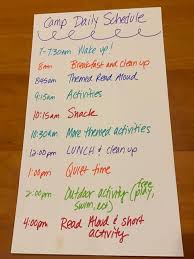 Camp Daily Schedule
7-7:30am Wake up!
8am Breakfast and clean up
8:45am Themed Read Aloud
9:15am Activities
10:15am Snack
10:30am More themed activities
12:00pm LUNCH & clean up
1:00pm Quiet time
2:00pm Outdoor activity (free play,
swim, ect)
4:00pm Read Aloud & short
activity